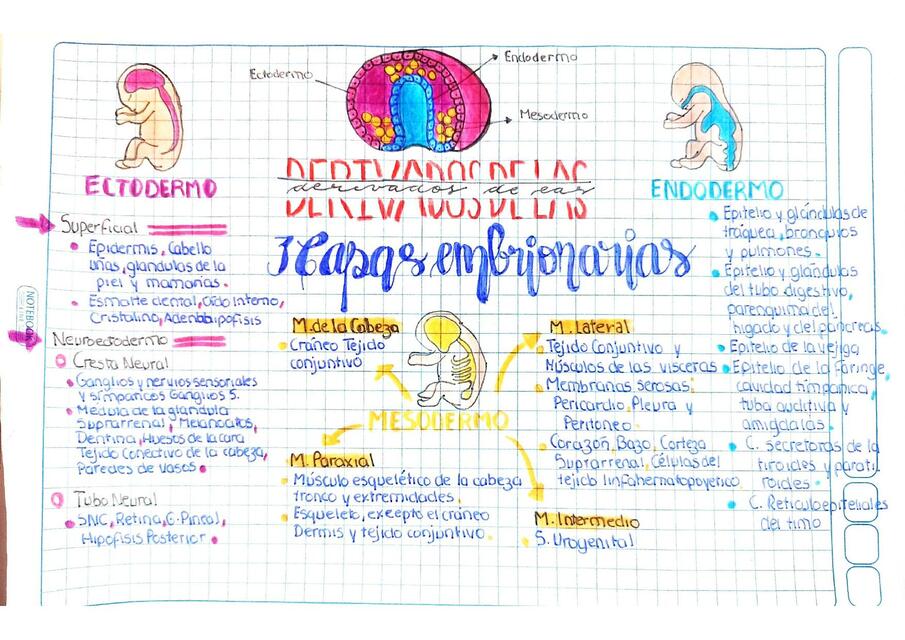 Ectodermo
Endodermo
Mesodermo
DERIVADOS DE LAS
derivados de las
3 Capas embrionarias
ECTODERMO
Superficial
Epidermis, Cabello
uñas, glandulas de la
piel y mamarias.
Esmalte dental, Oido Interno,
Cristalino, Adenohipofisis
Neuroectodermo
Cresta Neural
Ganglios y nervios sensoriales
y simpaticos Ganglios S.
Medula de la glandula
Suprarrenal, Melanocitos,
Dentina, Huesos de la cara
Tejido Conectivo de la cabeza,
Paredes de vasos.
Tubo Neural
SNC, Retina, C. Pineal,
Hipofisis Posterior.
MESODERMO
M. de la Cabeza
Cráneo Tejido
conjuntivo
M. Paraxial
Músculo esquelético de la cabeza
tronco y extremidades.
Esqueleto, excepto el cráneo
Dermis y tejido conjuntivo.
M. Lateral
Tejido Conjuntivo y
Músculos de las visceras
Membranas serosas:
Pericardio, Pleura y
Peritoneo
Corazón, Bazo, Corteza
Suprarrenal, Células del
tejido linfohematopoyetico
M. Intermedio
S. Urogenital
ENDODERMO
Epitelio y glándulas de
traquea, bronquios
y pulmones.
Epitelio y glandulas
del tubo digestivo,
parenquima del
higado y del pancreas.
Epitelio de la vejiga
Epitelio de la faringe,
cavidad timpanica,
tuba auditiva y
amigdalas.
C. secretoras de la
tiroides y parati
roides.
C. Reticuloepiteliales
del timo
NOTEBOOK